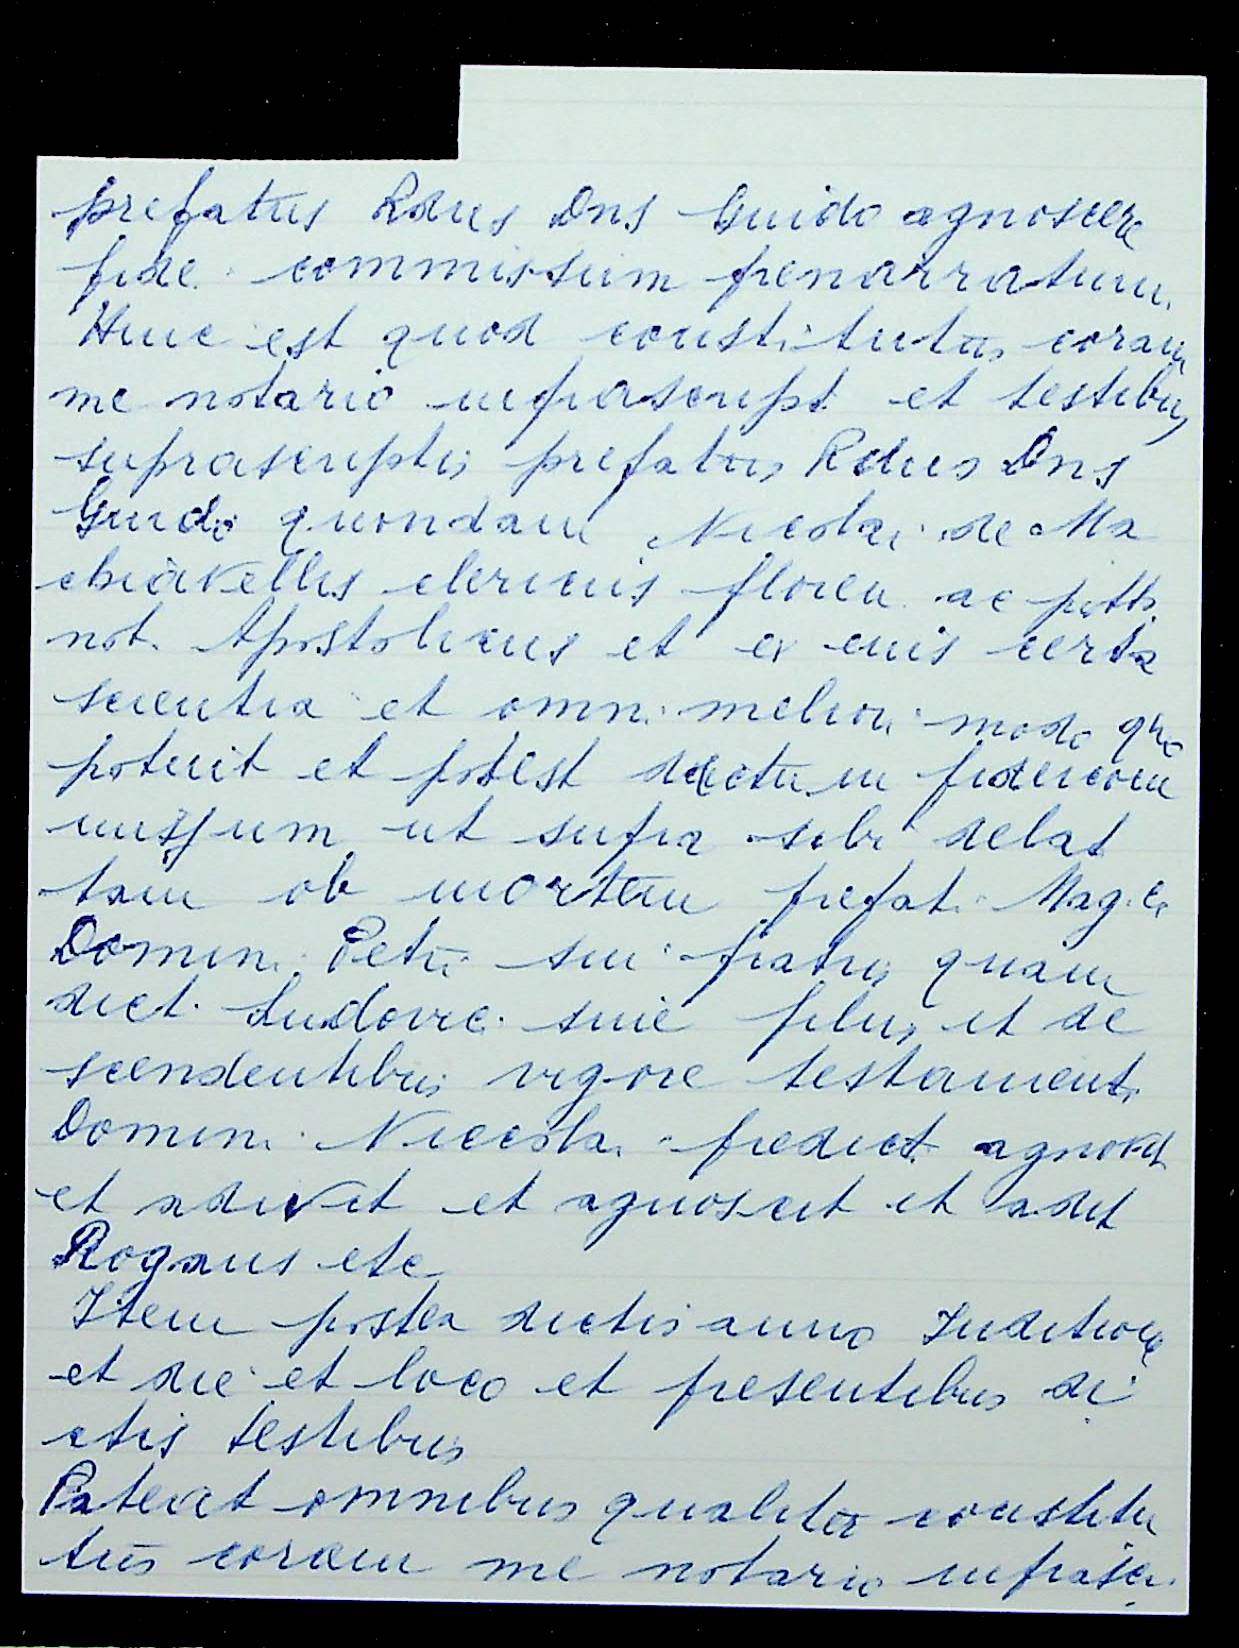 prefatus Rdus Dns Guido agnoscere
fide commissum prenarratum.
Hinc est quod constitutus coram
me notario infrascript et testibus
suprascriptis prefatus Rdus Dns
Guido quondam Nicolai de Ma
chiavellis clericus floren. ac
not. Apostolicus et ex eius certa
scientia et omni meliori modo quo
potuit et potest dictum fideicom
missum ut supra sibi delat
tam ob mortem prefat. Mag.ci
Domini Petri sui fratris quam
dict. Ludovic. sine filiis et de
scendentibus vigore testamenti
Domini Niccolai predict. agnovit
et adivit et agnoscit et adit
Rogans etc
Item postea dictis anno Inditione
et die et loco et presentibus di
ctis testibus
Pateat omnibus qualiter constitu
tus coram me notario infrascr.